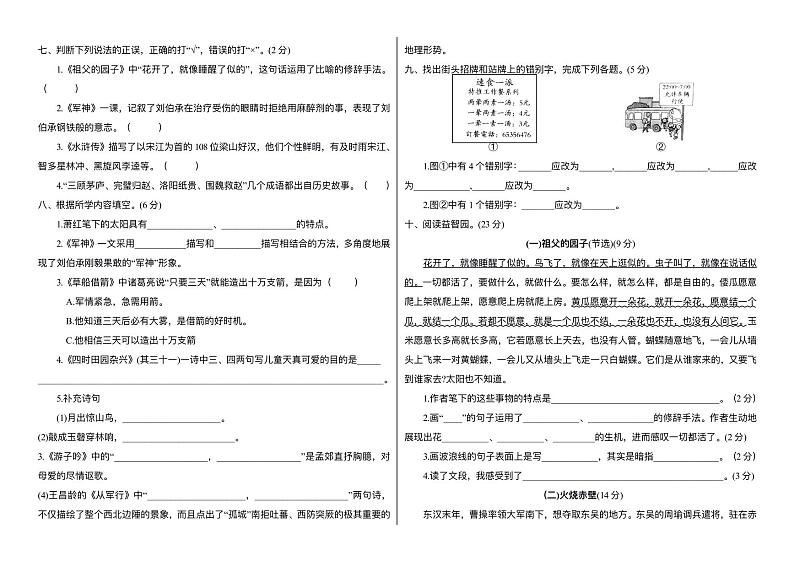 七、判断下列说法的正误，正确的打“√”，错误的打“×”。(2 分)
1.《祖父的园子》中“花开了，就像睡醒了似的”，这句话运用了比喻的修辞手法。
（　　）
2.《军神》一课，记叙了刘伯承在治疗受伤的眼睛时拒绝用麻醉剂的事，表现了刘
伯承钢铁般的意志。（　　）
3.《水浒传》描写了以宋江为首的 108 位梁山好汉，他们个性鲜明，有及时雨宋江、
智多星林冲、黑旋风李逵等。（　　）
4.“三顾茅庐、完璧归赵、洛阳纸贵、围魏救赵”几个成语都出自历史故事。（　　）
八、根据所学内容填空。(6 分)
1.萧红笔下的太阳具有______________、________________的特点。
2.《军神》一文采用___________描写和__________描写相结合的方法，多角度地展
现了刘伯承刚毅果敢的“军神”形象。
3.《草船借箭》中诸葛亮说“只要三天”就能造出十万支箭，是因为（　　）
A.军情紧急，急需用箭。
B.他知道三天后必有大雾，是借箭的好时机。
C.他相信三天可以造出十万支箭
4.《四时田园杂兴》(其三十一)一诗中三、四两句写儿童天真可爱的目的是_____
__________________________________________________________________________。
5.补充诗句
(1)月出惊山鸟，_____________________。
(2)敲成玉磬穿林响，________________________。
3.《游子吟》中的“____________________，__________________”是孟郊直抒胸臆，对
母爱的尽情讴歌。
(4)王昌龄的《从军行》中“____________________，____________________”两句诗，
不仅描绘了整个西北边陲的景象，而且点出了“孤城”南拒吐蕃、西防突厥的极其重要的
地理形势。
九、找出街头招牌和站牌上的错别字，完成下列各题。(5 分)
速食一派
特推工作餐系列
两晕两素一汤：5元
一晕两素一汤：4元
一晕一素一汤：3元
订餐電話：65356476
①
22:00-7:00
允许车辆
行使
②
1.图①中有 4 个错别字：_______应改为_______，_______应改为_______，______应改
为____________，_______应改为_______。
2.图②中有 1 个错别字：_______应改为_______。
十、阅读益智园。(23 分)
(一)祖父的园子(节选)(9 分)
花开了，就像睡醒了似的。鸟飞了，就像在天上逛似的。虫子叫了，就像在说话似
的。一切都活了，要做什么，就做什么。要怎么样，就怎么样，都是自由的。倭瓜愿意
爬上架就爬上架，愿意爬上房就爬上房。黄瓜愿意开一朵花，就开一朵花，愿意结一个
瓜，就结一个瓜。若都不愿意，就是一个瓜也不结，一朵花也不开，也没有人问它。玉
米愿意长多高就长多高，它若愿意长上天去，也没有人管。蝴蝶随意地飞，一会儿从墙
头上飞来一对黄蝴蝶，一会儿又从墙头上飞走一只白蝴蝶。它们是从谁家来的，又要飞
到谁家去?太阳也不知道。
1.作者笔下的这些事物的特点是____________________________________。（2 分）
2.画“____”的句子运用了____________、______________的修辞手法。作者生动地
展现出花__________、__________、_________的生机，进而感叹一切都活了。(2 分)
3.画波浪线的句子表面上是写____________，其实是暗指______________。（2 分）
4.读了文段，我感受到了___________________________________________。(3 分)
(二)火烧赤壁(14 分)
东汉末年，曹操率领大军南下，想夺取东吴的地方。东吴的周瑜调兵遣将，驻在赤